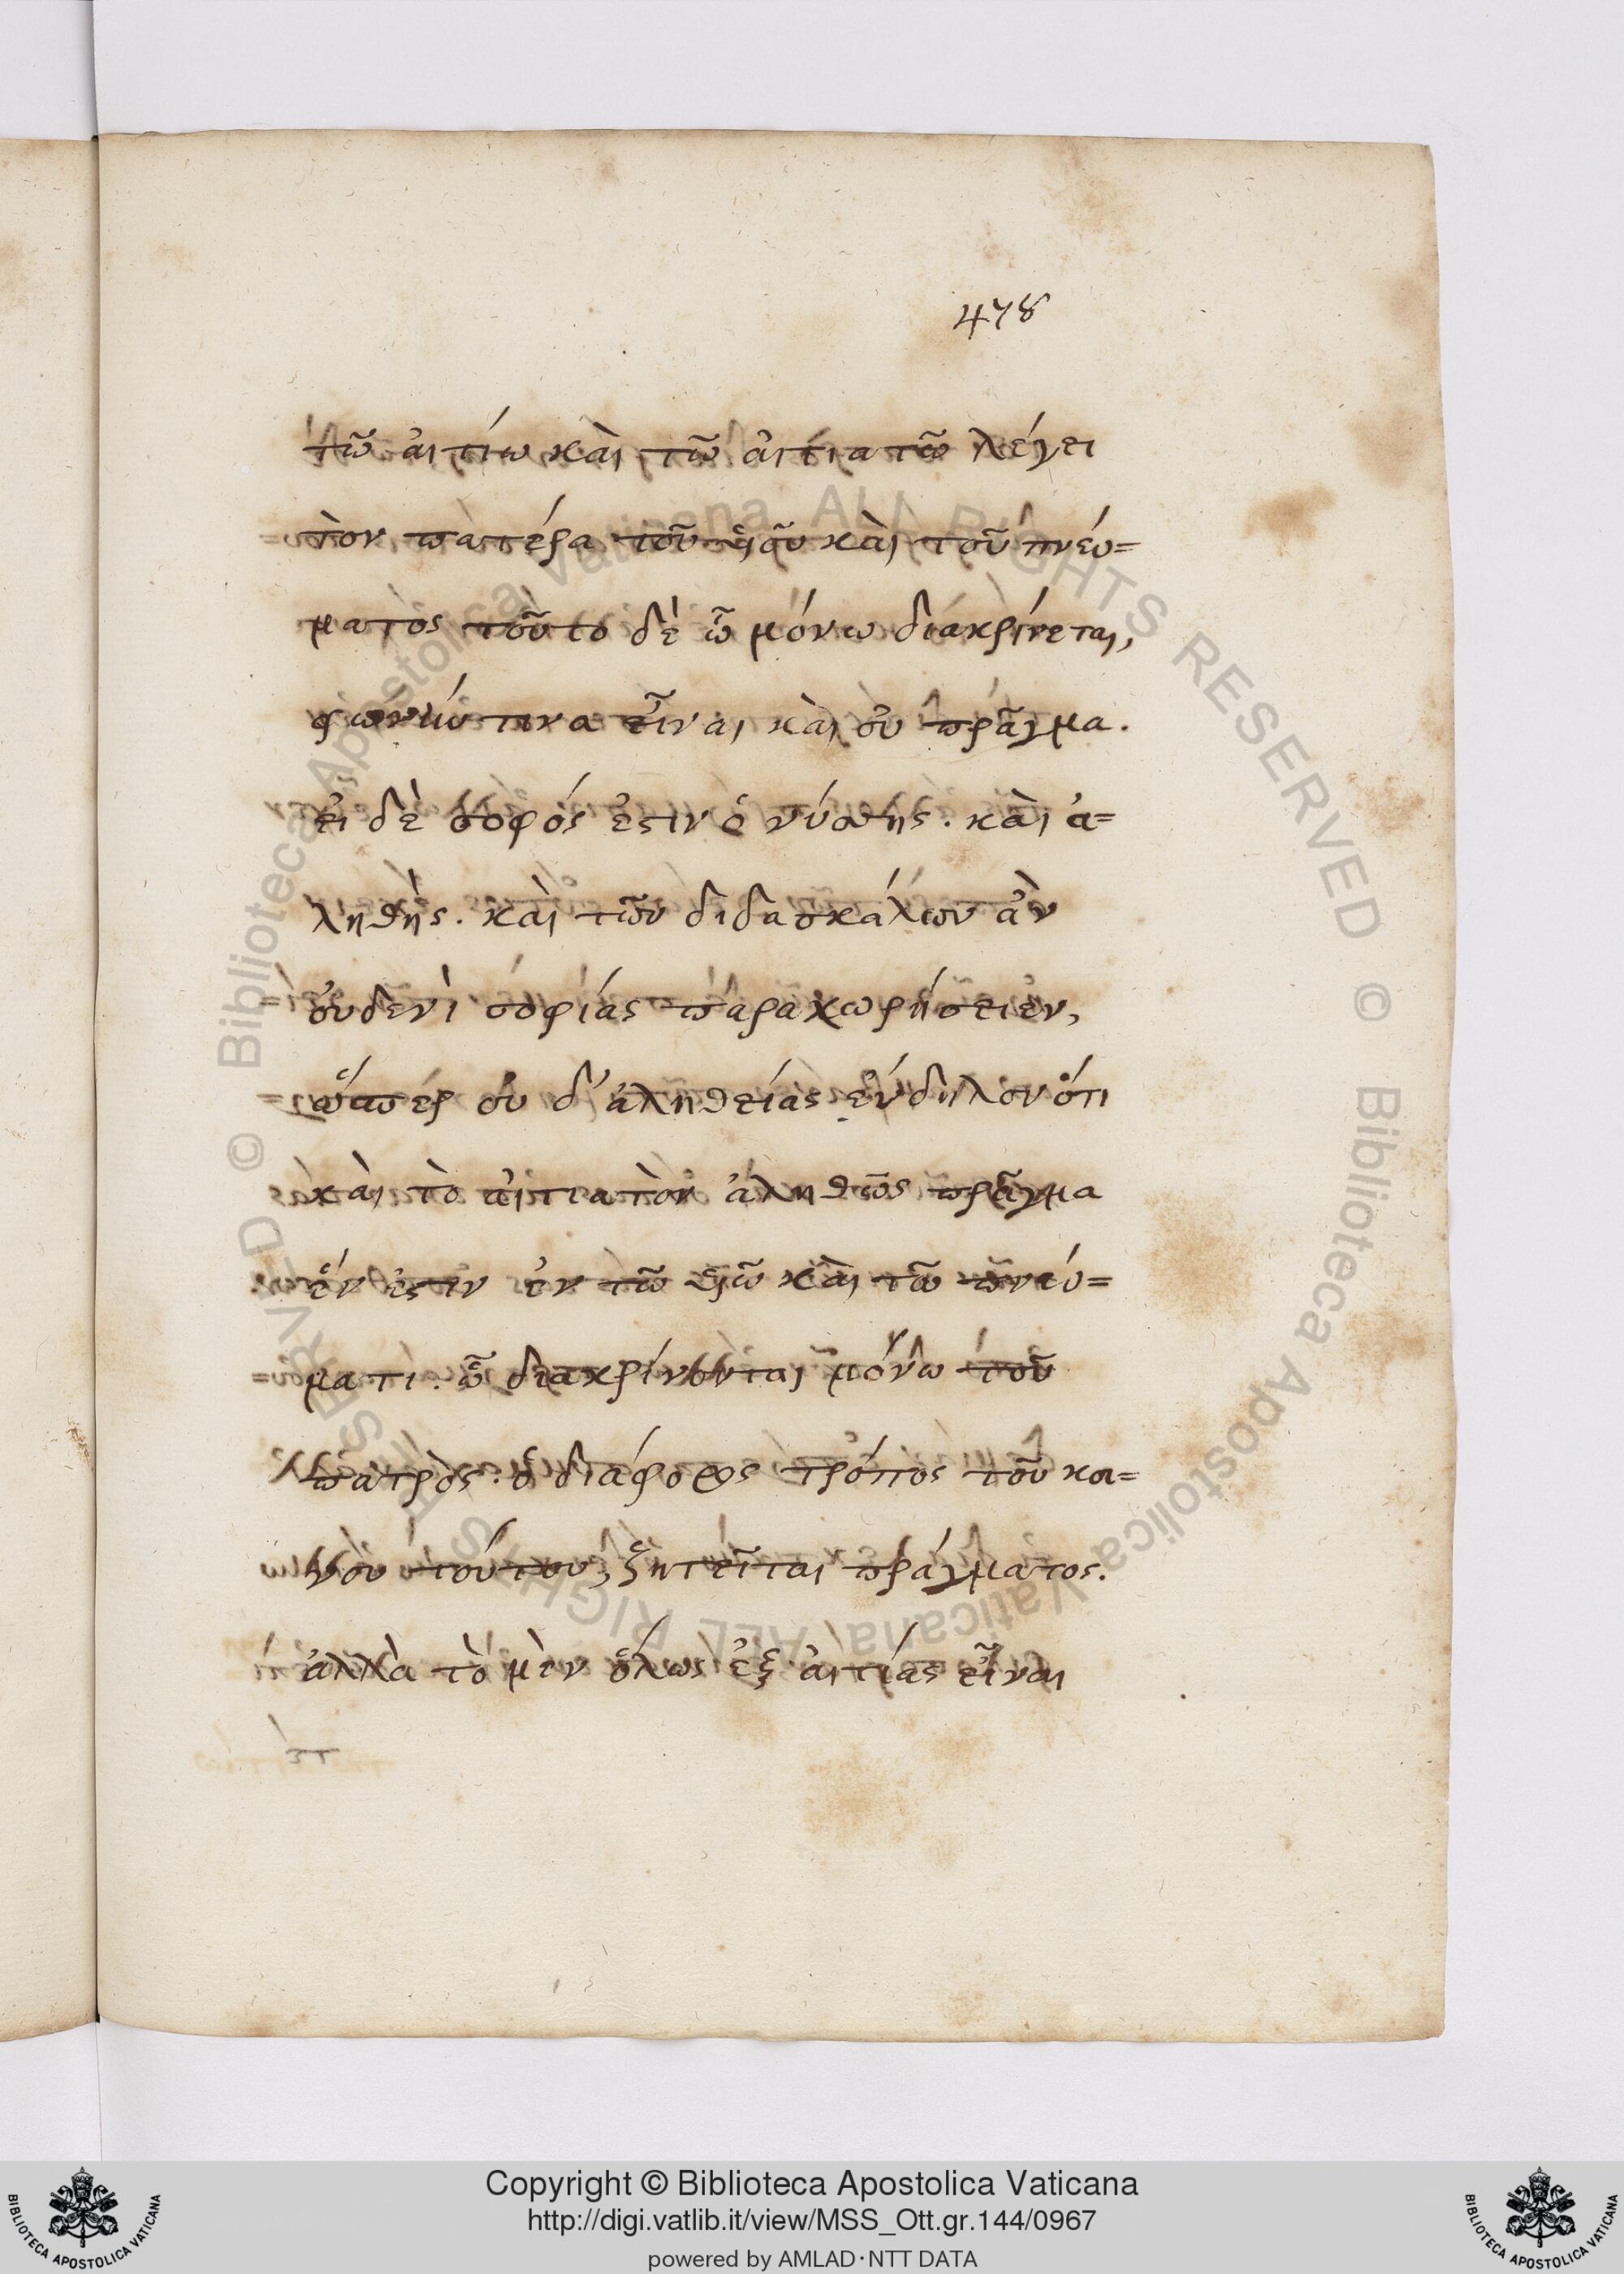 478
τῶ ἀιτίω κὰι τῶ ἀιτιατῶ λέγει
τὸν πατέρα τοῦ ὑιοῦ κὰι τοῦ πνέυ=
ματὸς τοῦτο δὲ ὧ μόνω διακρίνεται,
φωνήν τινα εἶναι κὰι ὀυ πρᾶγμα.
ἐι δὲ σοφός ἐστιν ὁ νύσης. κὰι ἀ=
ληθὴς. κὰι τῶν διδασκάλων ἀν
ὀυδενὶ σοφίας παραχωρήσειεν,
ὥσπερ ὀυ δ' ἀληθείας ἔυδηλον ὅτι
κὰι τὸ ἀιτιατὸν ἀληθῶς πρᾶγμα
ἕν ἐστιν ἐν τῶ ὑιῶ κὰι τῶ πνέυ=
ματι. ὧ διακρίνονται μόνω τοῦ
πατρὸς. ὁ διάφορος τρόπος τοῦ κοι=
νοῦ τούτου, ζητεῖται πράγματος.
ἀλλὰ τὸ μὲν ὅλως ἐξ ἀιτίας εἶναι
Copyright © Biblioteca Apostolica Vaticana
http://digi.vatlib.it/view/MSS_Ott.gr.144/0967
powered by AMLAD·NTT DATA
BIBLIOTECA APOSTOLICA VATICANA
BIBLIOTECA APOSTOLICA VATICANA
© Biblioteca Apostolica Vaticana ALL RIGHTS RESERVED © Biblioteca Apostolica Vaticana ALL RIGHTS RESERVED